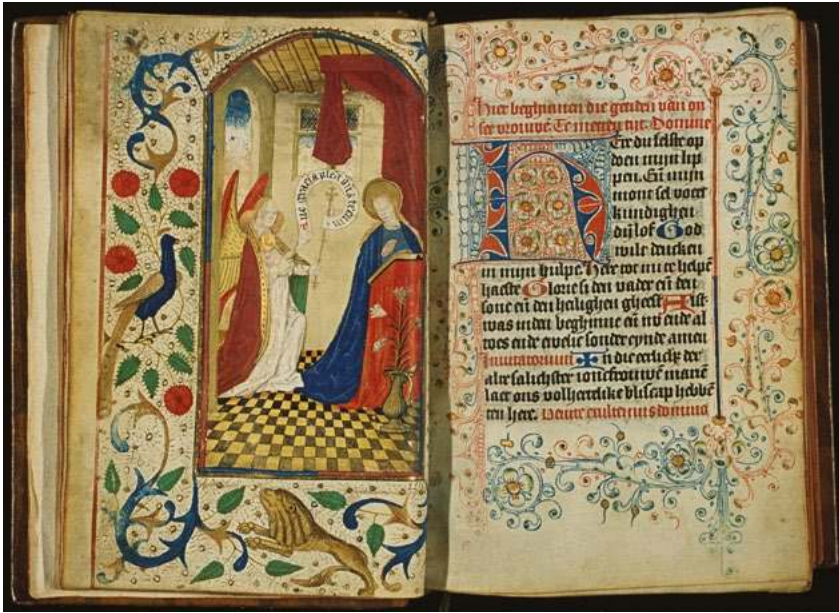 Aue gracia plena dns tecum
Hier beghinnen die getiden van on
ser vrouwē. Te metten tijt. Domine
Ere du selste op
doen mijn lip
pen. En̄ mijn
mont sel voert
kundighen
dij lof God
wile dencken
in mijn hulpe. Here we mi te helpē
haeste Glorie si den vader en̄ den
sone en̄ den heilighen gheest Alst
was inden beghinne en̄ nv ende al
toes ende ewelic sonder eynde amen
Inuitatorium n̄ die eerlicħ der
alre salichster ioncfrouwē mariē
laet ons volhertelike bliscap hebbē
ten here. Venite exultemus domino